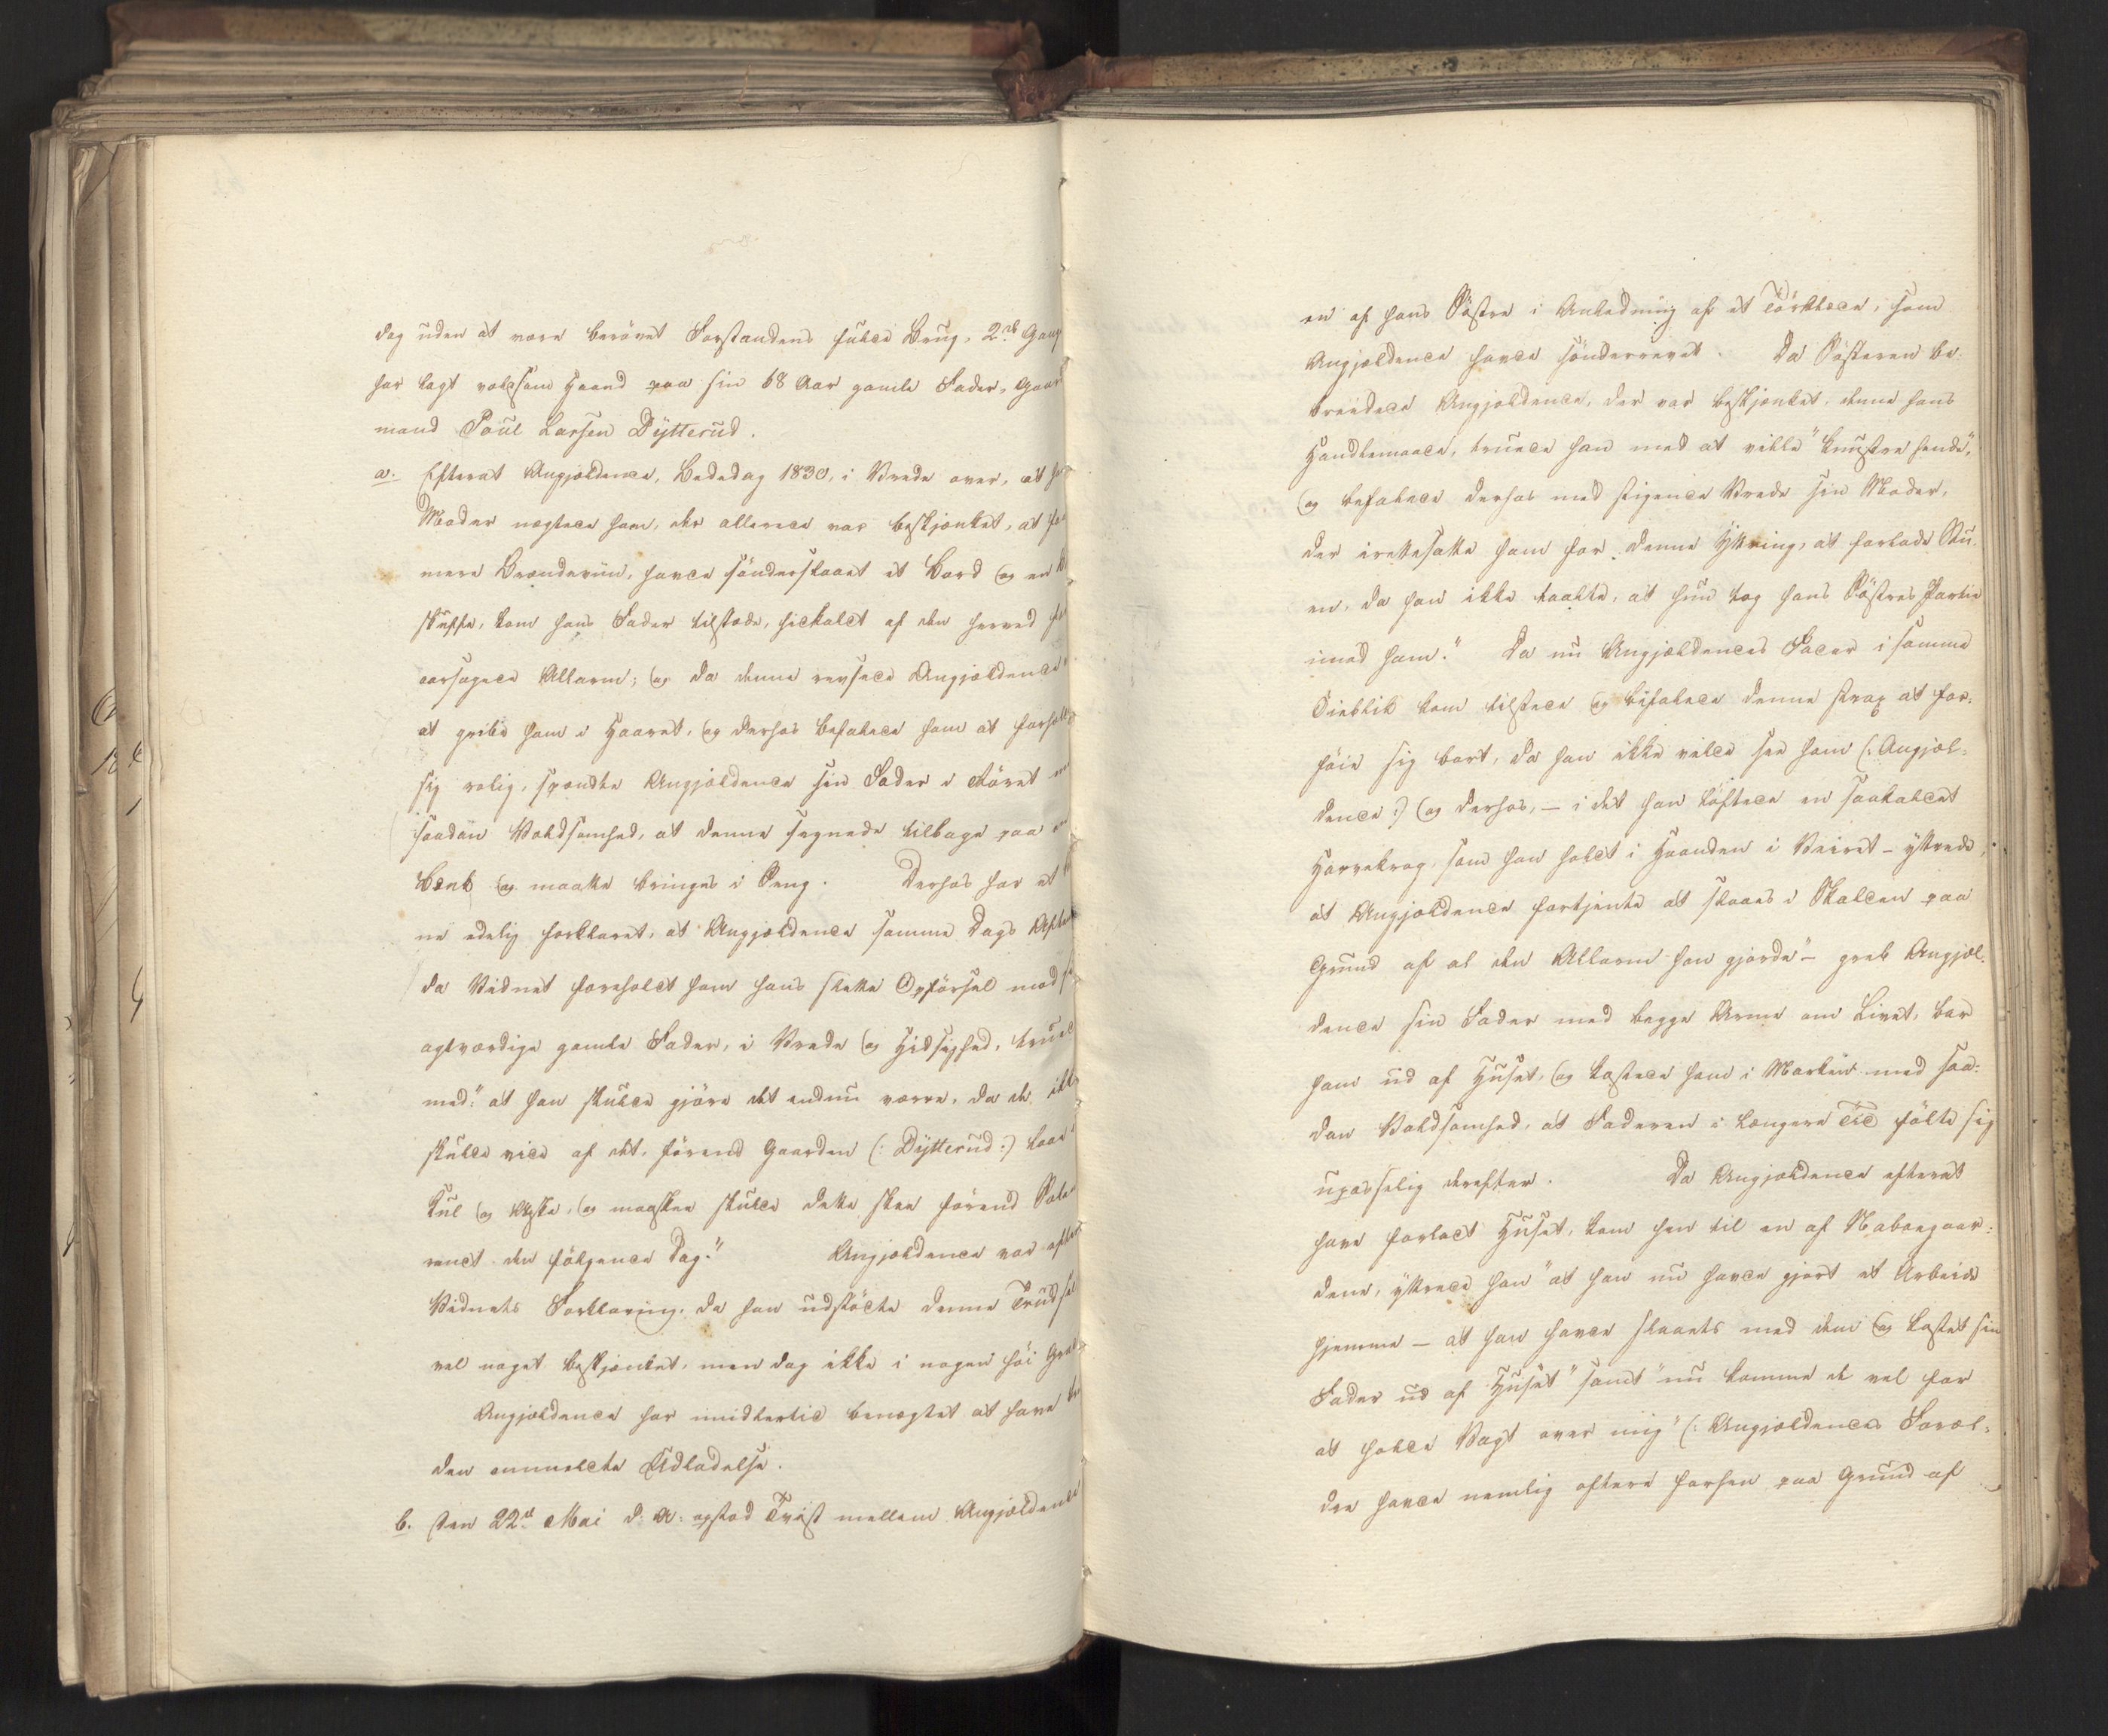 dog uden at være berøvet Forstandens fulde Brug, 2de Gang
har lagt voldsom Haand paa sin 68 Aar gamle Fader, Gaard
mand Poul Larsen Dytterud.
a. Efterat Angjældende, Bededag 1830, i Vrede over, at ha
Moder nægtede ham, der allerede var beskjænket, at f
mere Brændeviin, havde sønderslaaet et Bord og en
skuffe, kom hans Fader tilstæde, hidkaldt af den herved f
aarsagede Allarm; og da denne revsede Angjældende
at gribe ham i Haaret, og derhos befalede ham at forhold
sig rolig, spændte Angjældende sin Fader i Låret m
saadan Voldsomhed, at denne segnede tilbage paa en
Bænk og maatte bringes i Seng. Derhos har et
ne edelig forklaret, at Angjældende samme Dags Aften
da Vidnet foreholdt ham hans slette Opførsel mod s
agtværdige gamle Fader, i Vrede og Hidsighed, trued
med: "at han skulde gjøre det endnu værre, da de ikk
skulde vide af det, førend Gaarden (: Dytterud :) laae i
Kul og Aske, og maaskee skulde dette skee førend Solen
randt den følgende Dag." Angjældende var efter
Vidnets Forklaring, da han udstødte denne Trudsel
vel noget beskjænket, men dog ikke i nogen høi Grad
Angjældende har imidlertid benægtet at have
den anmældte Udladelse.
b. Den 22de Mai d. A. opstod Tvist mellem Angjældende
en af hans Søstre i Anledning af et Tørklæde, som
Angjældende havde sønderrevet. Da Søsteren be-
breidede Angjældende, der var beskjænket, denne hans
Handlemaade, truede han med at ville "knustre hende",
og befalede derhos med stigende Vrede sin Moder,
der irettesatte ham for denne Yttring, at forlade Stu-
en, da han ikke taalte, at hun tog hans Søstres Partie
imod ham." Da nu Angjældendes Fader i samme
Øieblik kom tilstede og befalede denne strax at for-
føie sig bort, da han ikke vilde see ham (: Angjæl-
dende :) og derhos, – i det han løftede en saakaldet
Harvekrog, som han holdt i Haanden i Veiret – yttrede,
at Angjældende fortjente at slaaes i Skallen paa
Grund af al den Allarm han gjorde" – greb Angjæl-
dende sin Fader med begge Arme om Livet, bar
ham ud af Huset, og kastede ham i Marken med saa-
dan Voldsomhed, at Faderen i længere Tid følte sig
upasselig derefter. Da Angjældende efterat
have forladt Huset, kom hen til en af Nabogaar-
dene, yttrede han "at han nu havde gjort et Arbeide
hjemme – at han havde slaaets med dem og kastet sin
Fader ud af Huset" samt "nu komme de vel for
at holde Vagt over mig" (: Angjældendes Foræl-
dre havde nemlig oftere forhen paa Grund af